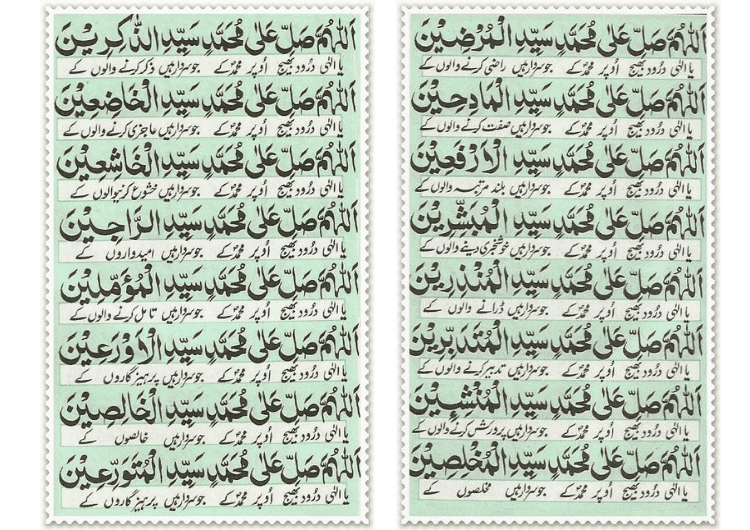 اَللّٰهُمَّ صَلِّ عَلٰى مُحَمَّدٍ سَيِّدِ الْمُرْضِيْنَ
یا الٰہی درُود بھیج اُوپر محمدؐ کے جو سردار ہیں راضی کرنے والوں کے
اَللّٰهُمَّ صَلِّ عَلٰى مُحَمَّدٍ سَيِّدِ الْمَادِحِيْنَ
یا الٰہی درُود بھیج اُوپر محمدؐ کے جو سردار ہیں صفت کرنے والوں کے
اَللّٰهُمَّ صَلِّ عَلٰى مُحَمَّدٍ سَيِّدِ الْاَرْفَعِيْنَ
یا الٰہی درُود بھیج اُوپر محمدؐ کے جو سردار ہیں بلند مرتبہ والوں کے
اَللّٰهُمَّ صَلِّ عَلٰى مُحَمَّدٍ سَيِّدِ الْمُبَشِّرِيْنَ
یا الٰہی درُود بھیج اُوپر محمدؐ کے جو سردار ہیں خوشخبری دینے والوں کے
اَللّٰهُمَّ صَلِّ عَلٰى مُحَمَّدٍ سَيِّدِ الْمُنْذِرِيْنَ
یا الٰہی درُود بھیج اُوپر محمدؐ کے جو سردار ہیں ڈرانے والوں کے
اَللّٰهُمَّ صَلِّ عَلٰى مُحَمَّدٍ سَيِّدِ الْمُتَدَبِّرِيْنَ
یا الٰہی درُود بھیج اُوپر محمدؐ کے جو سردار ہیں تدبیر کرنے والوں کے
اَللّٰهُمَّ صَلِّ عَلٰى مُحَمَّدٍ سَيِّدِ الْمُنْشِئِيْنَ
یا الٰہی درُود بھیج اُوپر محمدؐ کے جو سردار ہیں پرورش کرنے والوں کے
اَللّٰهُمَّ صَلِّ عَلٰى مُحَمَّدٍ سَيِّدِ الْمُخْلِصِيْنَ
یا الٰہی درُود بھیج اُوپر محمدؐ کے جو سردار ہیں مخلصوں کے
اَللّٰهُمَّ صَلِّ عَلٰى مُحَمَّدٍ سَيِّدِ الذّٰكِرِيْنَ
یا الٰہی درُود بھیج اُوپر محمدؐ کے جو سردار ہیں ذکر کرنے والوں کے
اَللّٰهُمَّ صَلِّ عَلٰى مُحَمَّدٍ سَيِّدِ الْخَاضِعِيْنَ
یا الٰہی درُود بھیج اُوپر محمدؐ کے جو سردار ہیں عاجزی کرنے والوں کے
اَللّٰهُمَّ صَلِّ عَلٰى مُحَمَّدٍ سَيِّدِ الْخَاشِعِيْنَ
یا الٰہی درُود بھیج اُوپر محمدؐ کے جو سردار ہیں خشوع کرنیوالوں کے
اَللّٰهُمَّ صَلِّ عَلٰى مُحَمَّدٍ سَيِّدِ الرَّاجِيْنَ
یا الٰہی درُود بھیج اُوپر محمدؐ کے جو سردار ہیں امیدواروں کے
اَللّٰهُمَّ صَلِّ عَلٰى مُحَمَّدٍ سَيِّدِ الْمُؤَمِّلِيْنَ
یا الٰہی درُود بھیج اُوپر محمدؐ کے جو سردار ہیں تامل کرنے والوں کے
اَللّٰهُمَّ صَلِّ عَلٰى مُحَمَّدٍ سَيِّدِ الْاَوْرَعِيْنَ
یا الٰہی درُود بھیج اُوپر محمدؐ کے جو سردار ہیں پرہیزگاروں کے
اَللّٰهُمَّ صَلِّ عَلٰى مُحَمَّدٍ سَيِّدِ الْخَالِصِيْنَ
یا الٰہی درُود بھیج اُوپر محمدؐ کے جو سردار ہیں خالصوں کے
اَللّٰهُمَّ صَلِّ عَلٰى مُحَمَّدٍ سَيِّدِ الْمُتَوَرِّعِيْنَ
یا الٰہی درُود بھیج اُوپر محمدؐ کے جو سردار ہیں پرہیزگاروں کے